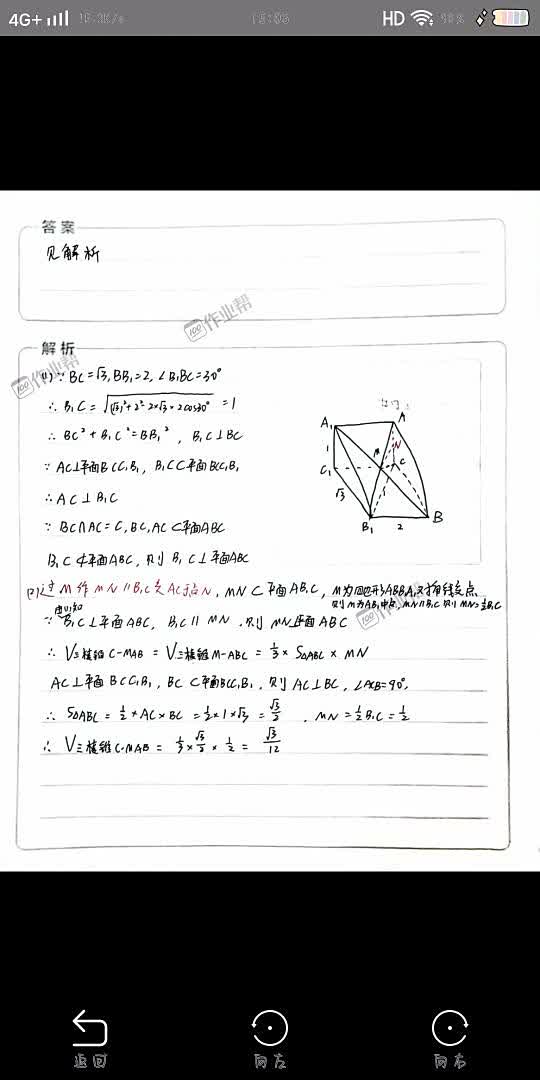 4G+
15:05
HD
答案
见解析
100 作业帮
解析
100 作业帮
(1) ∵ BC=√3, BB₁=2, ∠B₁BC=30°
∴ B₁C = √((√3)²+2²-2×√3×2cos30°) = 1
∴ BC²+B₁C²=BB₁², B₁C⊥BC
∵ AC⊥平面BCC₁B₁, B₁C⊂平面BCC₁B₁
∴ AC⊥B₁C
∵ BC∩AC=C, BC, AC⊂平面ABC
B₁C⊄平面ABC, 则 B₁C⊥平面ABC
A₁
A
1
M
N
1
C₁
C
√3
B₁
2
B
(2) 过M作MN∥B₁C交AC于点N, MN⊂平面AB₁C, M为四边形ABB₁A₁对角线交点,
则M为AB₁中点, MN∥B₁C 则MN=½B₁C
由(1)知
∵ B₁C⊥平面ABC, B₁C∥MN, 则MN⊥平面ABC
100 作业帮
∴ V三棱锥C-MAB = V三棱锥M-ABC = ⅓×S△ABC×MN
AC⊥平面BCC₁B₁, BC⊂平面BCC₁B₁, 则AC⊥BC, ∠ACB=90°,
∴ S△ABC = ½×AC×BC = ½×1×√3 = √3/2, MN=½B₁C=½
∴ V三棱锥C-MAB = ⅓×√3/2×½ = √3/12
返回
向左
向右